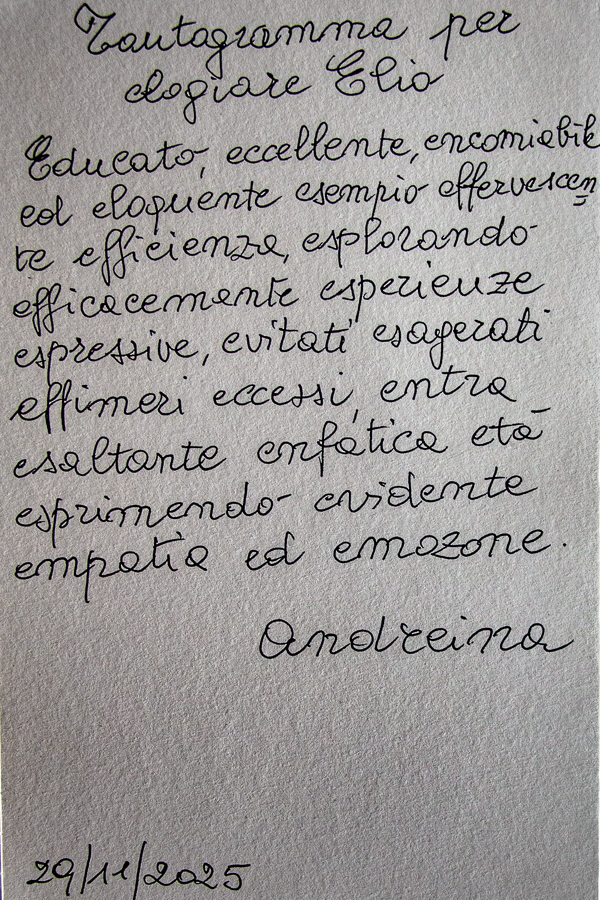 Tautogramma per
elogiare Elio
Educato, eccellente, encomiabile
ed eloquente esempio effervescen
te efficienza, esplorando
efficacemente esperienze
espressive, evitati esagerati
effimeri eccessi, entra
esaltante enfatica età
esprimendo evidente
empatia ed emozone.
Andreina
29/11/2025